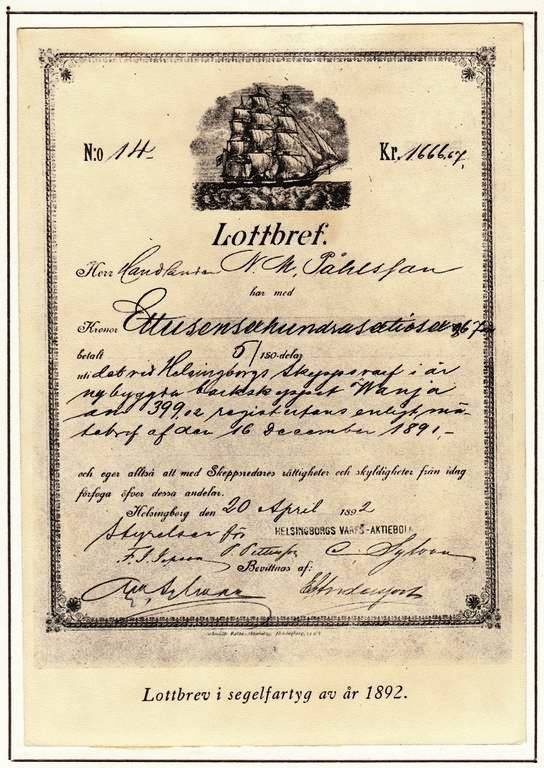 N:o 14 Kr. 1666,67.
Lottbref.
Herr Handlanden N. M. Påhlsson
har med
Kronor Ettusensexhundrasextiosex 67
betalt 5/150-delar
uti det vid Helsingborgs Skeppsvarf i år
nybyggda barkskeppet Wanja
om 399,02 registertons enligt mä-
tebref af den 16 December 1891,-
och eger alltså att med Skeppsredares rättigheter och skyldigheter från idag
förfoga öfver dessa andelar.
Helsingborg den 20 April 1892
Styrelsen för HELSINGBORGS VARFS-AKTIEBOL
P. Pettersson C. Sylvan
Bevittnas af:
Lottbrev i segelfartyg av år 1892.